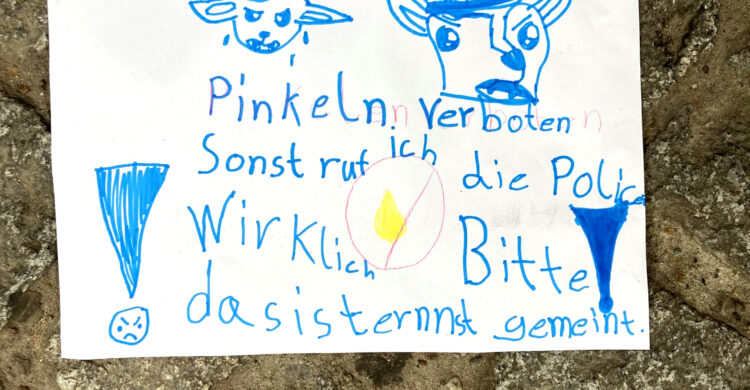 Pinkeln verboten
Sonst ruf ich die Police
Wirklich Bitte
das ist ernnst gemeint.